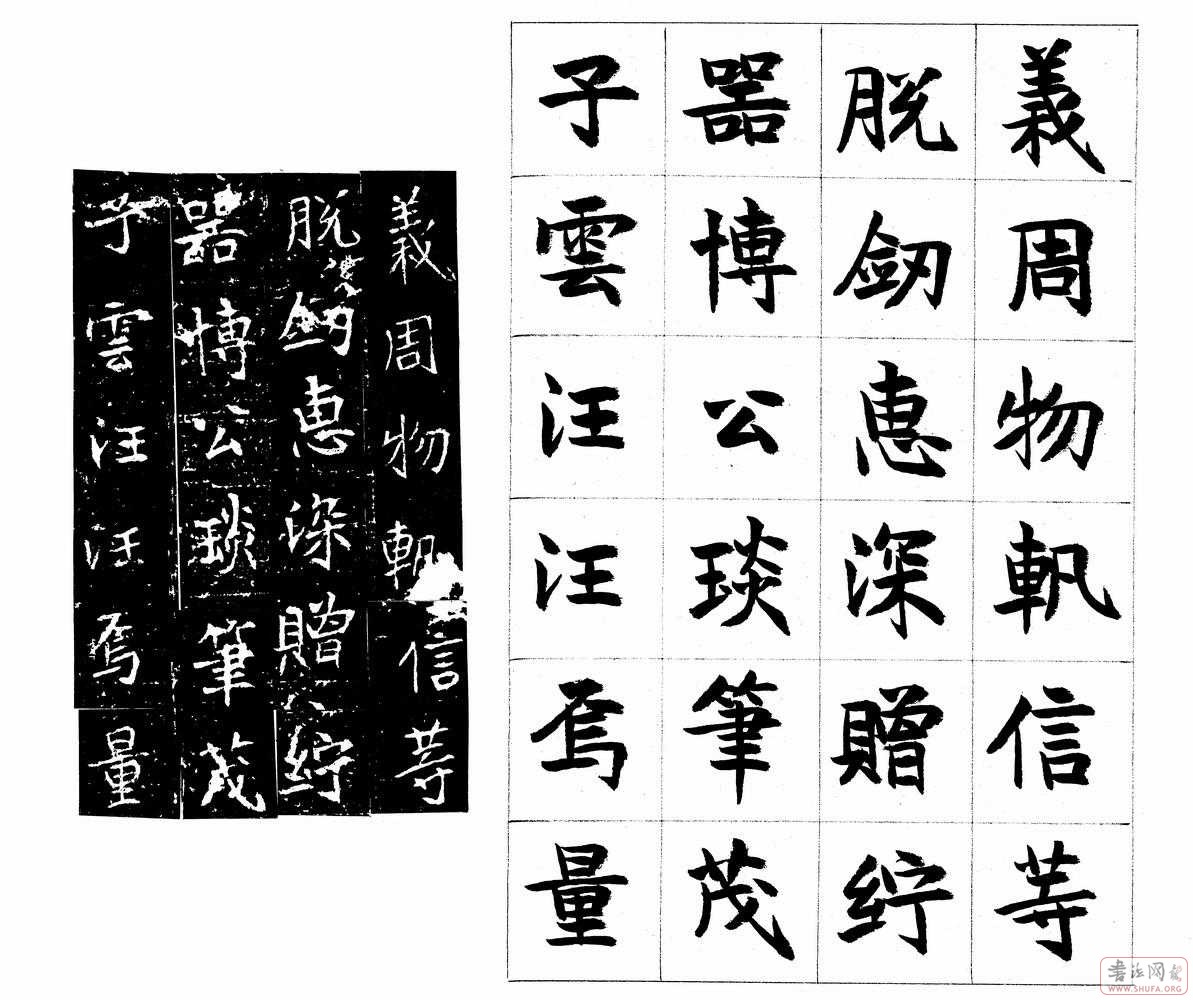 義周物軓信䓁
脱劒恵深贈紵
噐博公琰筆茂
子雲汪汪焉量
義周物軓信䓁
脱劒恵深贈紵
噐博公琰筆茂
子雲汪汪焉量
書法网
WWW.SHUFA.ORG